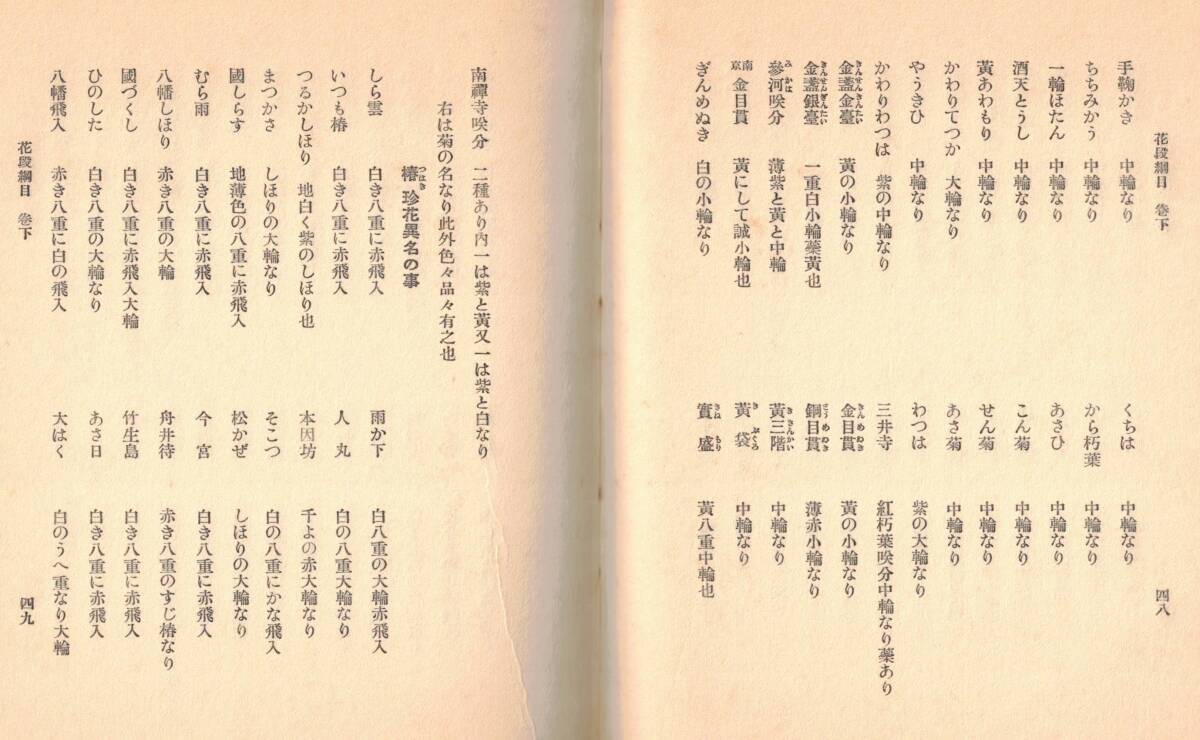 花段綱目 卷下
四八
手鞠かき 中輪なり
ちちみかう 中輪なり
一輪ほたん 中輪なり
酒天とうし 中輪なり
黃あわもり 中輪なり
かわりてつか 大輪なり
やうきひ 中輪なり
かわりわつは 紫の中輪なり
金盞金臺 黃の小輪なり
金盞銀臺 一重白小輪蘂黃也
參河咲分 薄紫と黃と中輪
南京金目貫 黃にして誠小輪也
ぎんめぬき 白の小輪なり
くちは 中輪なり
から朽葉 中輪なり
あさひ 中輪なり
こん菊 中輪なり
せん菊 中輪なり
あさ菊 中輪なり
わつは 紫の大輪なり
三井寺 紅朽葉咲分中輪なり蘂あり
金目貫 黃の小輪なり
銅目貫 薄赤小輪なり
黃三階 中輪なり
黃袋 中輪なり
實盛 黃八重中輪也
南禪寺咲分 二種あり內一は紫と黃又一は紫と白なり
右は菊の名なり此外色々品々有之也
椿珍花異名の事
しら雲 白き八重に赤飛入
いつも椿 白き八重に赤飛入
つるかしほり 地白く紫のしほり也
まつかさ しほりの大輪なり
國しらす 地薄色の八重に赤飛入
むら雨 白き八重に赤飛入
八幡しほり 赤き八重の大輪
國づくし 白き八重に赤飛入大輪
ひのした 白き八重の大輪なり
八幡飛入 赤き八重に白の飛入
雨か下 白八重の大輪赤飛入
人丸 白の八重大輪なり
本因坊 千よの赤大輪なり
そこつ 白の八重にかな飛入
松かぜ しほりの大輪なり
今宮 白き八重に赤飛入
舟井待 赤き八重のすじ椿なり
竹生島 白き八重に赤飛入
あさ日 白き八重に赤飛入
大はく 白のうへ重なり大輪
花段綱目 卷下
四九